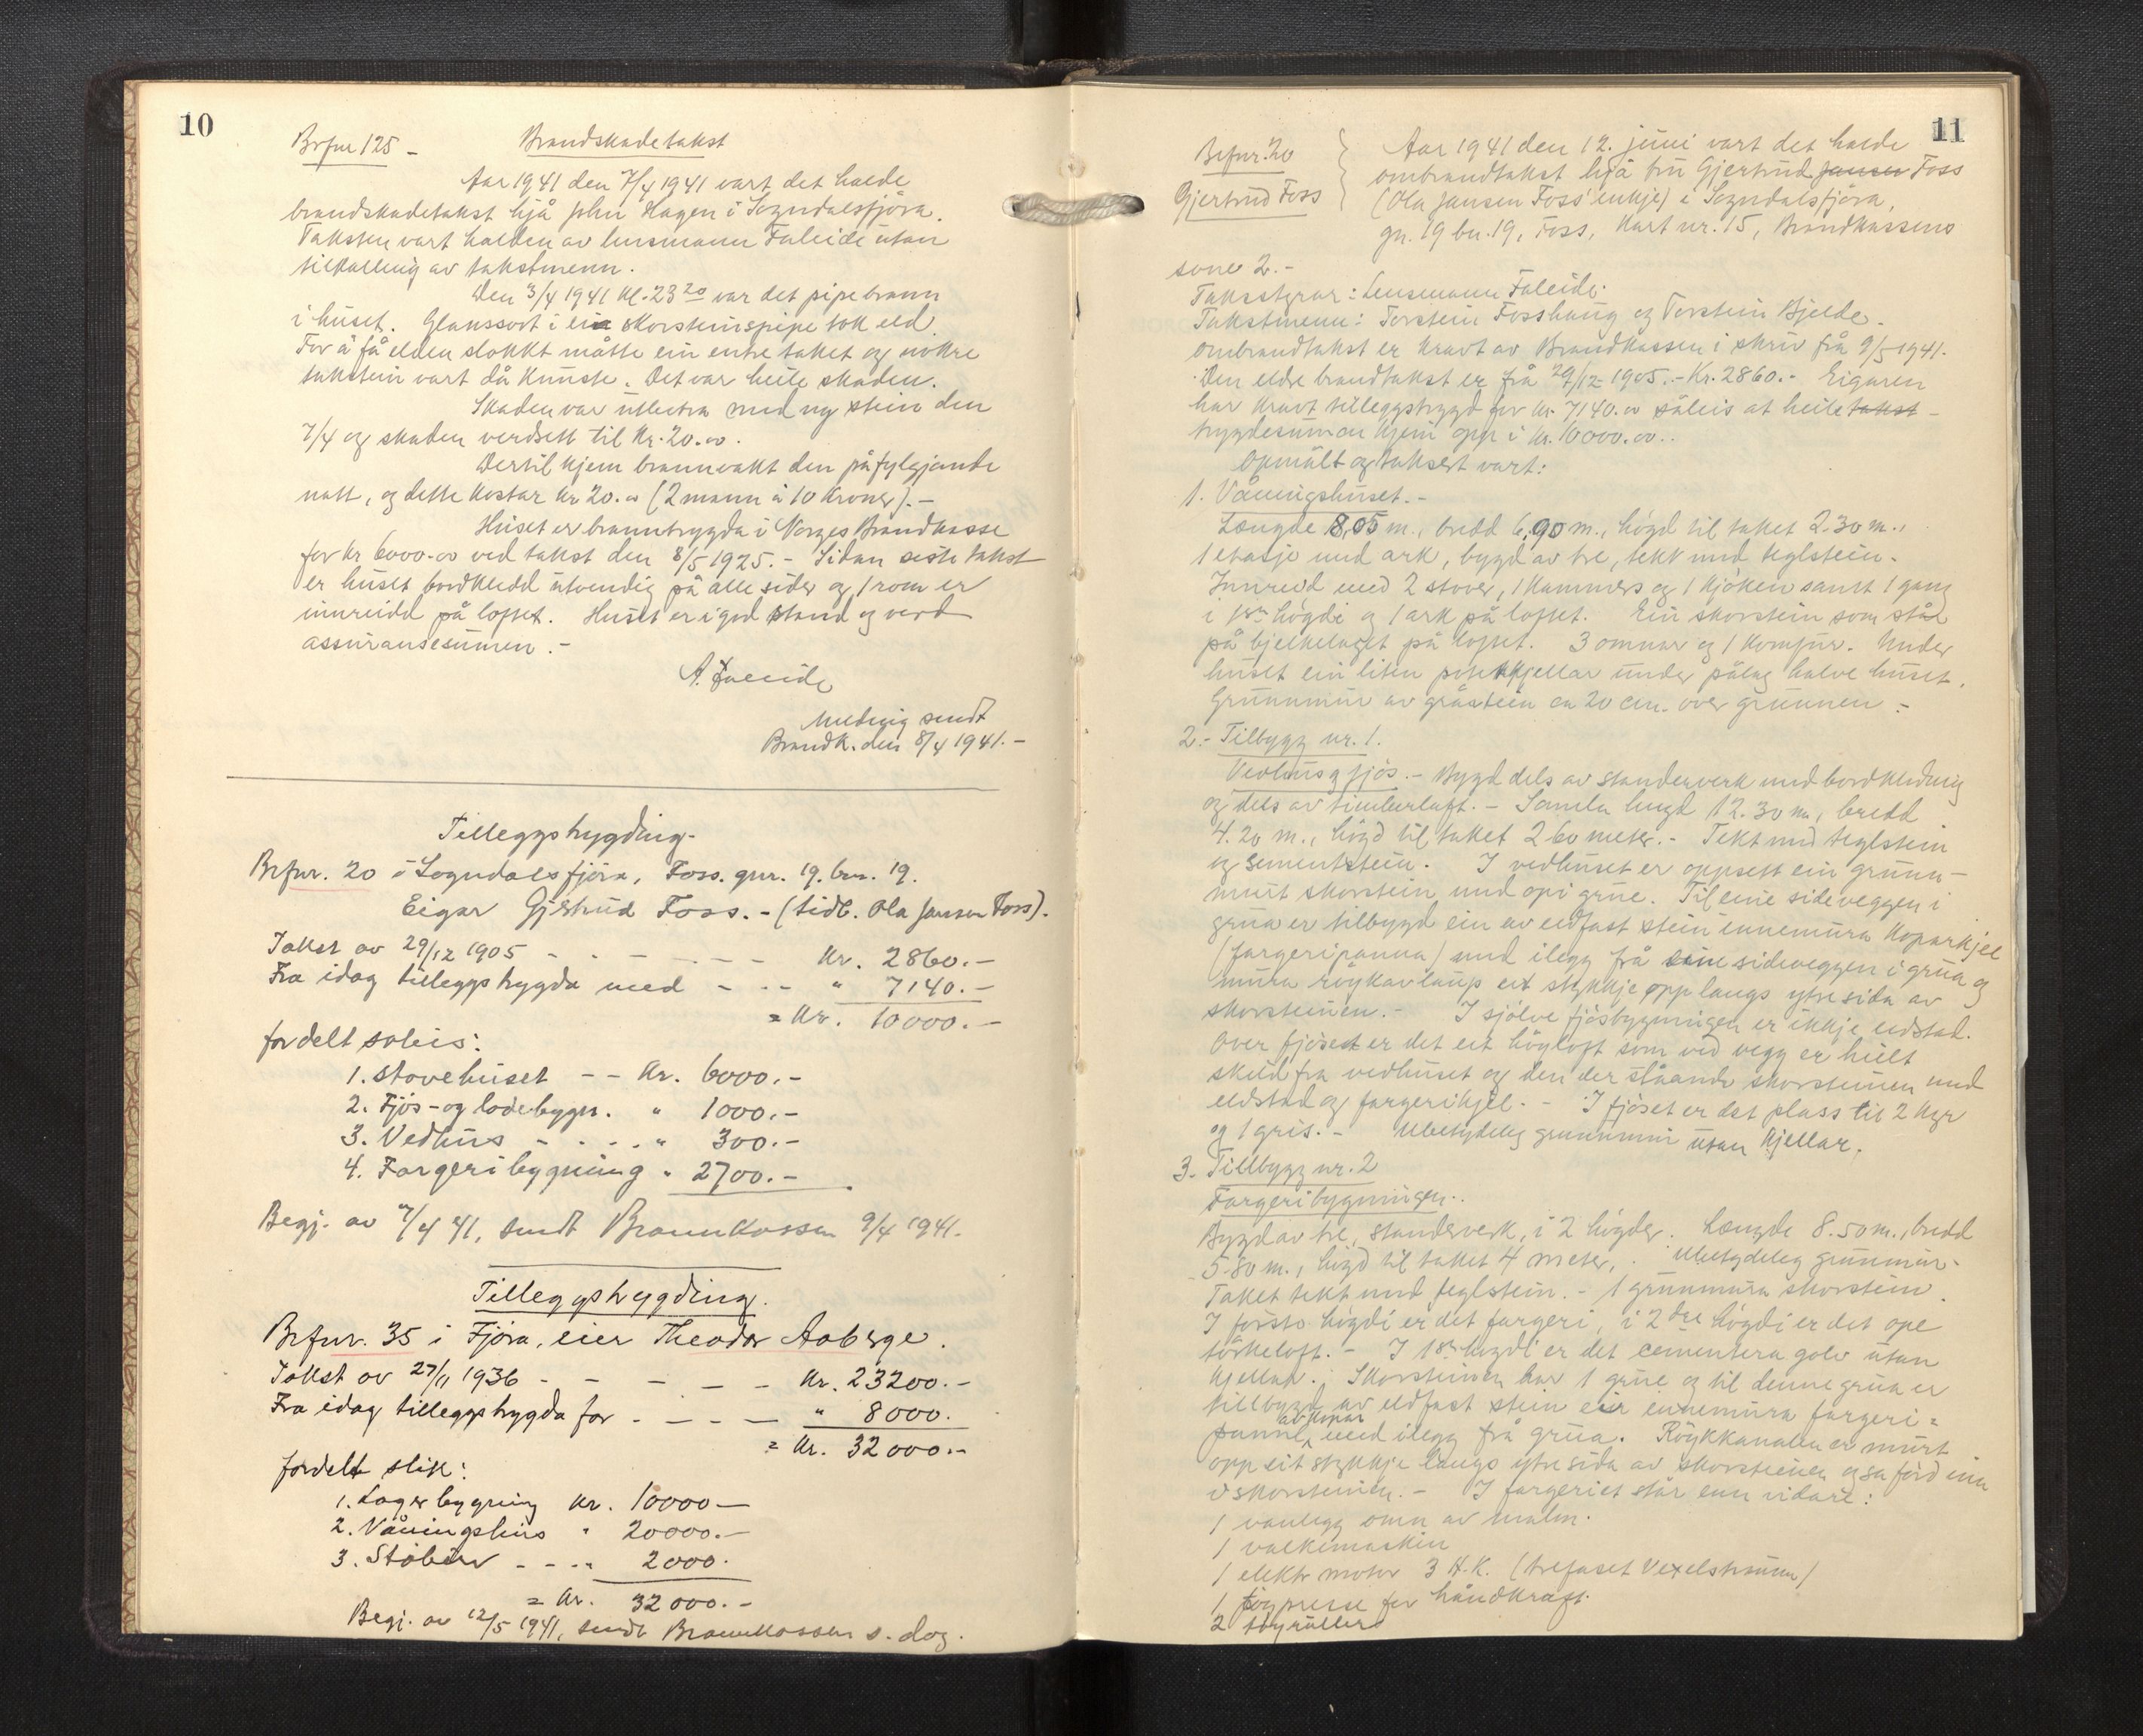 10
Brfnr 125 - Brandskadetakst
Aar 1941 den 7/4 1941 vart det halde
brandskadetakst hjå John Hagen i Sogndalsfjøra.
Taksten vart halden av lensmann Faleide utan
tilkalling av takstmenn.
Den 3/4 1941 kl. 23 20 var det pipebrann
i huset. Glanssot i ein skorsteinspipe tok eld.
For å få elden slokkt måtte ein entre taket og nokre
takstein vart då knuste. Det var heile skaden.
Skaden var utbetra med ny stein den
7/4 og skaden verdsett til kr. 20.00.
Dertil kjem brannvakt den påfylgjande
natt, og dette kostar kr 20.00 (2 mann à 10 kroner).-
Huset er branntrygda i Norges Brandkasse
for kr 6000.00 ved takst den 8/5 1925.- Sidan siste takst
er huset bordkledd utvendig på alle sider og 1 rom er
innreidd på loftet. Huset er i god stand og verd
assuransesummen.-
A. Faleide
Melding sendt
Brandk. den 8/4 1941.-
Tilleggstrygding-
Brfnr. 20 i Sogndalsfjøra, Foss. gnr. 19. bnr. 19.
Eigar Gjertrud Foss. - (tidl. Ola Jansen Foss).
Takst av 29/12 1905 - - - - - - kr. 2860.-
Fra idag tilleggstrygda med - - - " 7140.-
= kr. 10000.-
fordelt soleis:
1. Stovehuset - - kr. 6000.-
2. Fjøs- og lødebygn. " 1000.-
3. Vedhus - - - - " 300.-
4. Fargeribygning " 2700.-
Begj. av 7/4 41, sendt Brannkassen 9/4 1941.
Tilleggstrygding.
Brfnr. 35 i Fjøra, eier Theodor Aaberge.
Takst av 27/11 1936 - - - - - kr. 23200.-
Fra idag tilleggstrygda for - - - - " 8000.
= kr. 32000.-
fordelt slik:
1. Lagerbygning kr. 10000-
2. Våningshus " 20000.-
3. Stabur - - - " 2000.
= kr. 32000.-
Begj. av 12/5 1941, sendt Brannkassen s. dag.
11
Brfnr. 20
Gjertrud Foss
Aar 1941 den 12. juni vart det halde
ombrandtakst hjå fru Gjertrud Jansen Foss
(Ola Jansen Foss' enkje) i Sogndalsfjøra,
gn. 19 bn. 19, Foss, Kart nr. 15, Brandkassens
sone 2.-
Takststyrar: Lensmann Faleide.
Takstmenn: Torstein Fosshaug og Torstein Bjelde.
Ombrandtakst er kravt av Brandkassen i skriv frå 9/5 1941.
Den eldre brandtakst er frå 29/12-1905.- Kr. 2860.- Eigaren
har kravt tilleggstrygd for kr. 7140.00 såleis at heile takst-
trygdesummen kjem opp i kr. 10000.00..
Opmålt og taksert vart:
1. Våningshuset.-
Længde 8,05 m., bredd 6,90 m., høgd til taket 2.30 m.,
1 etasje med ark, bygd av tre, tekt med teglstein.
Innreid med 2 stover, 1 kammers og 1 kjøken samt 1 gang
i 1ste høgdi og 1 ark på loftet. Ein skorstein som står
på bjelkelaget på loftet. 3 omnar og 1 komfyr. Under
huset ein liten potetkjellar under pålag halve huset.
Grunnmur av gråstein ca 20 cm. over grunnen.-
2.- Tilbygg nr. 1.
Vedhus og fjøs.- Bygd dels av standerverk med bordkledning
og dels av timberlaft.- Samla lengd 12.30 m, bredd
4.20 m., høgd til taket 2 60 meter.- Tekt med teglstein
og sementstein. I vedhuset er oppsett ein grunn-
murt skorstein med opi grue. Til eine sideveggen i
grua er tilbygd ein av eldfast stein innemura koparkjel
(fargeripanna) med ilegg frå eine sideveggen i grua og
mura røykavlaup eit stykkje opp langs ytre sida av
skorsteinen.- I sjølve fjøsbygningen er ikkje eldstad.
Over fjøset er det eit høyloft som ved vegg er heilt
skild fra vedhuset og den der ståande skorsteinen med
eldstad og fargerikjel.- I fjøset er det plass til 2 kyr
og 1 gris.- Ubetydeleg grunnmur utan kjellar.
3. Tillbygg nr. 2
Fargeribygningen..
Bygd av tre, standerverk, i 2 høgder. Længde 8.50 m., bredd
5.80 m., høgd til taket 4 meter, . Ubetydeleg grunnmur.
Taket tekt med teglstein.- 1 grunnmura skorstein.
I første høgdi er det fargeri, i 2dre høgdi er det ope
tørkeloft.- I 1ste høgdi er det cementera golv utan
kjellar. Skorsteinen har 1 grue og til denne grua er
tillbygd av eldfast stein ein innemura fargeri=
panne av kopar med ilegg frå grua. Røykkanalen er murt
opp eit stykkje langs ytre sida av skorsteinen og så førd inn
i skorsteinen.- I fargeriet står enn vidare:
1 vanlegg omn av malm.
1 valkemaskin
1 elektr motor 3 H.K. (trefaset Vexelstrøm)
1 tøypresse for håndkraft.
2 tøyrullers